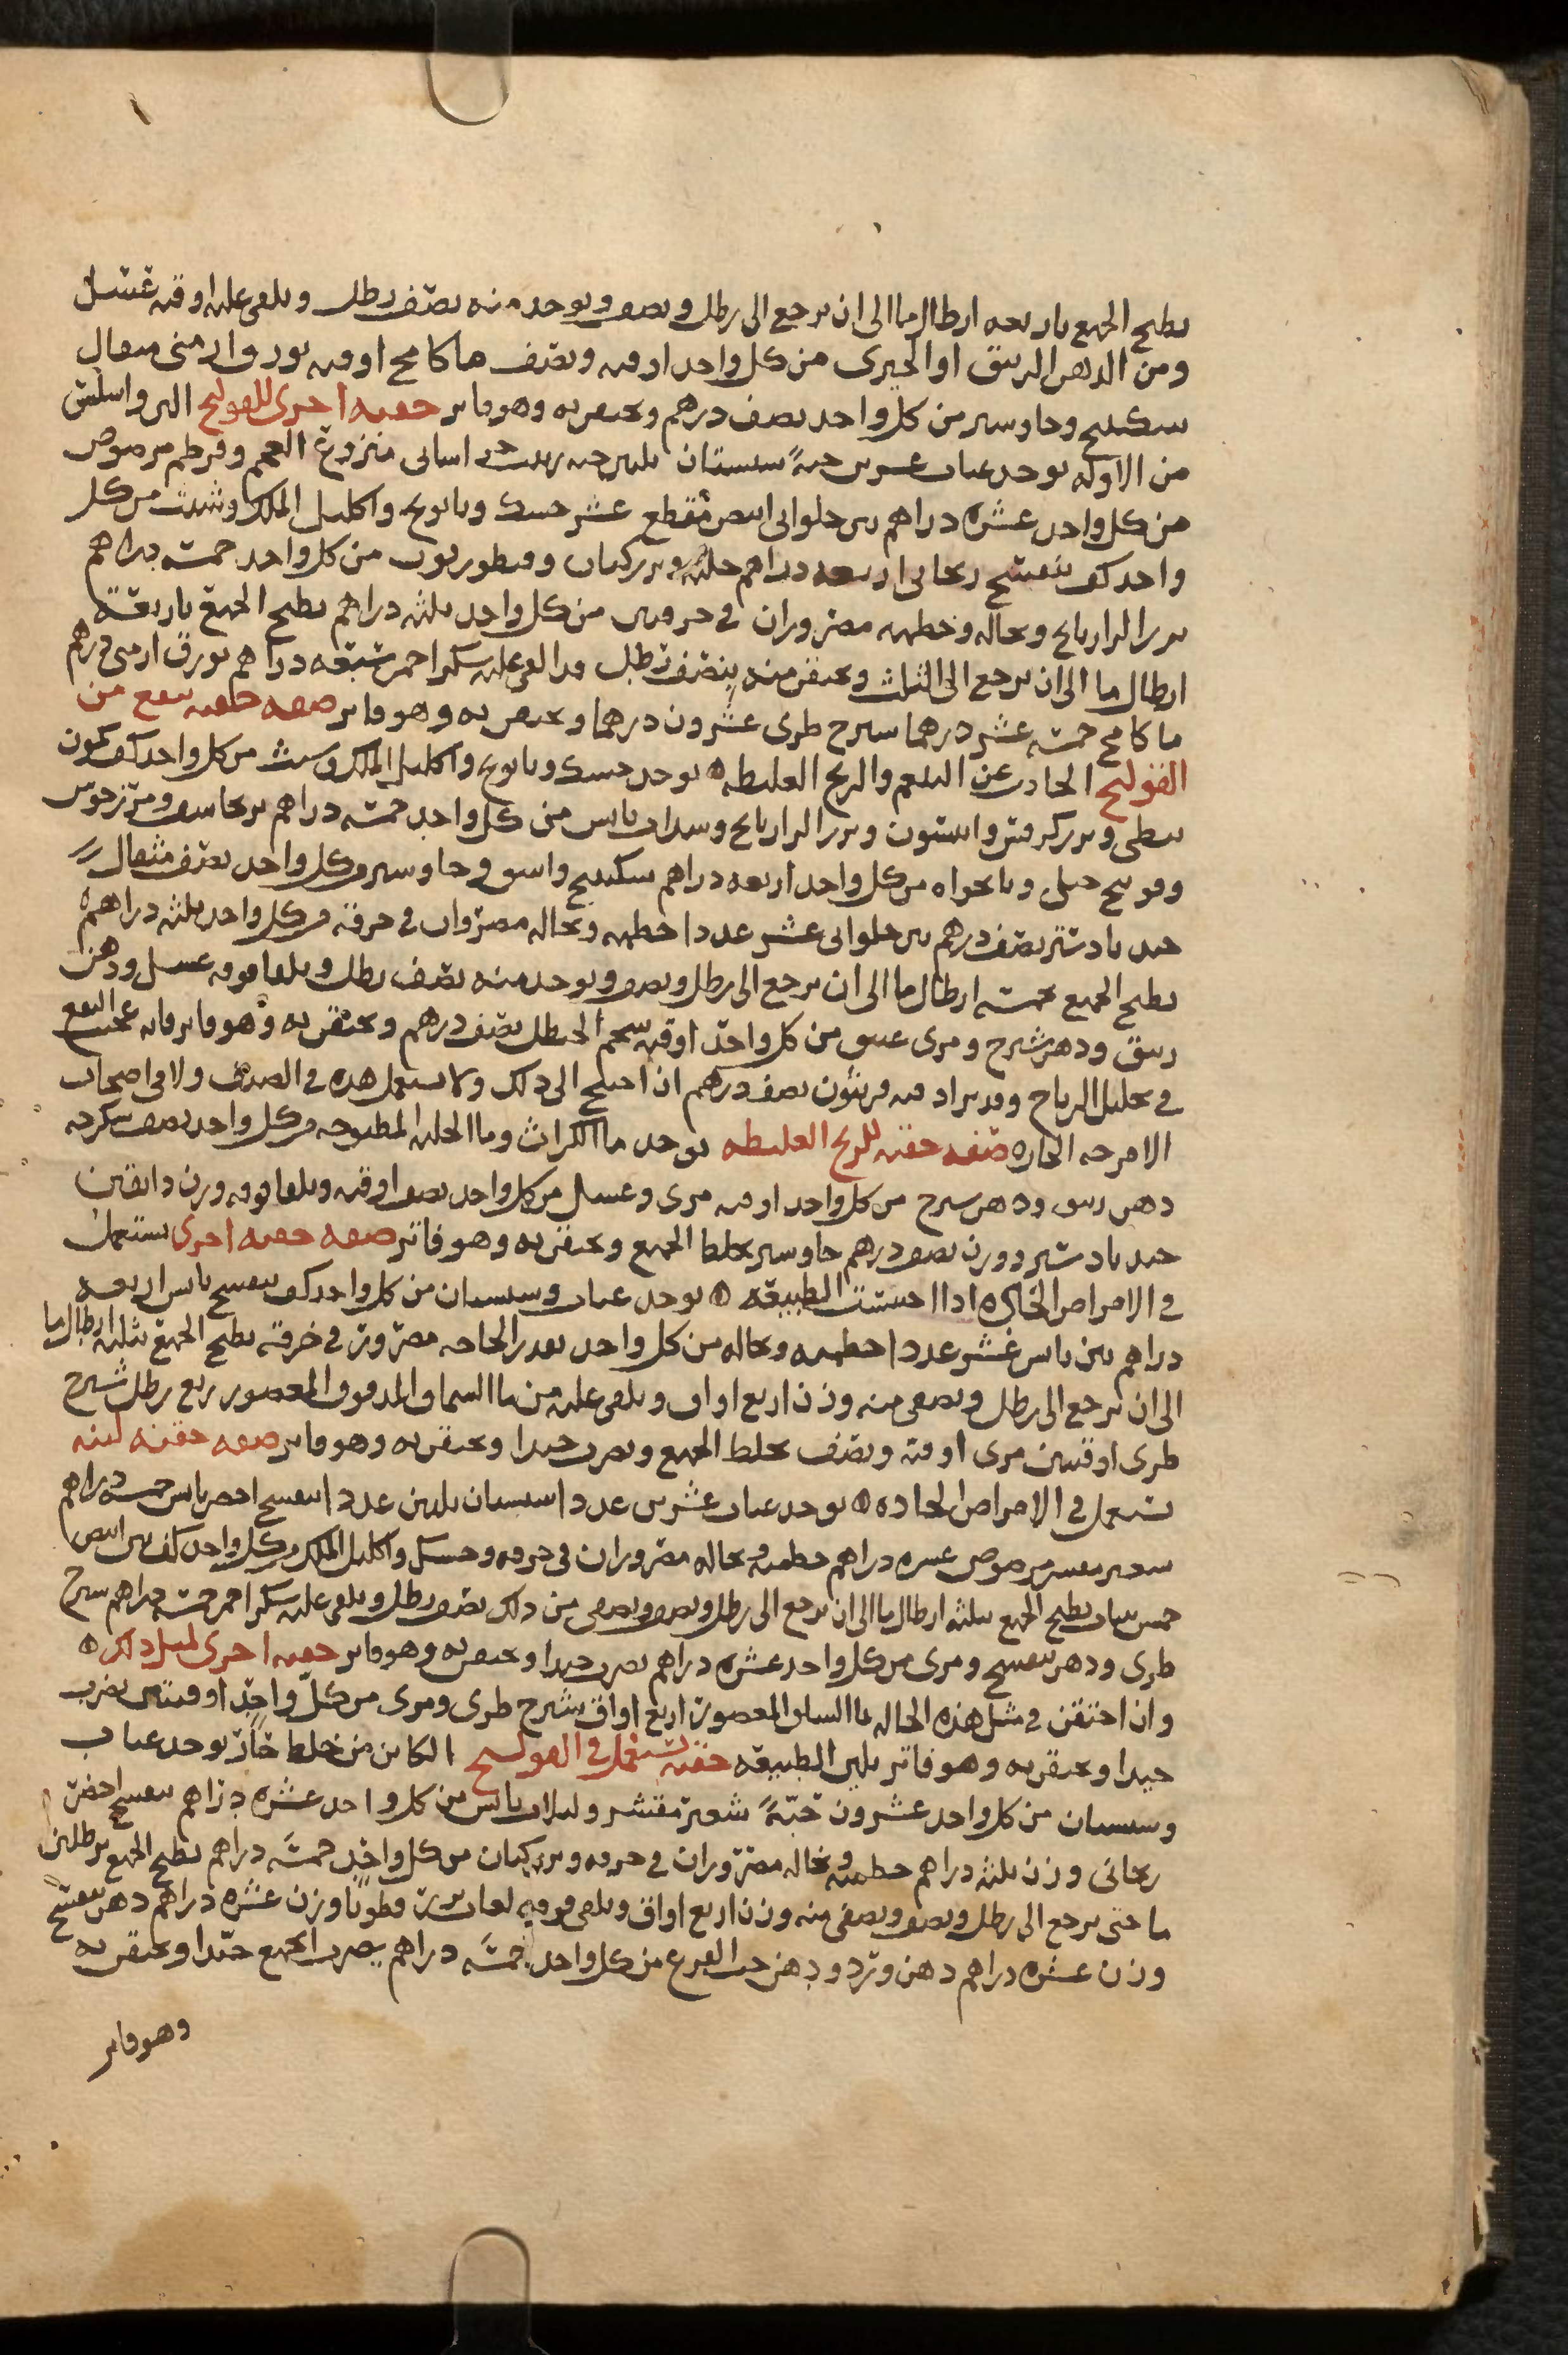 يطبخ الجميع باربعه ارطال ما الى ان يرجع الى رطل ويصفى ويوخذ منه نصف رطل ويلقى عليه اوقيه عسل
ومن الدهن الزيبق او الخيرى من كل واحد اوقيه ونصف ما كامخ اوقيه بورق ارمنى مثقال
سكبينج وجاوسير من كل واحد نصف درهم ويحتقن به وهو فاتر حقنه اخرى للقولنج الين واسلس
من الاوله يوخذ عناب عشرين حبةً سبستان ثلثين حبه زبيب خراسانى منزوع العجم وقرطم مرضوض
من كل واحد عشره دراهم تين حلوانى ابيض مقطع عشر حسك وبابونج واكليل الملك وشبث من كل
واحد كف بنفسج ريحانى اربعه دراهم حلبه وبزر كتان وقنطوريون من كل واحد خمسه دراهم
بزر الرازيانج ونخاله وخطميه مصروران فى خرقتين من كل واحد ثلثه دراهم يطبخ الجميع باربعة
ارطال ما الى ان يرجع الى الثلث ويحتقن منه بنصف رطل قد القى عليه سكر احمر سبعه دراهم بورق ارمنى درهم
ما كامخ خمسه عشر درهما سيرج طرى عشرون درهما ويحتقن به وهو فاتر صفه حقنه تنفع من
القولنج الحادث عن البلغم والريح الغليظه ۞ يوخذ حسك وبابونج واكليل الملك وشبث من كل واحد كف كمون
نبطى وبزر كرفس وانيسون وبزر الرازيانج وسداب يابس من كل واحد خمسه دراهم برنجاسف ومرزنجوش
وفوتنج جبلى ونانخواه من كل واحد اربعه دراهم سكبينج واشق وجاوسير من كل واحد نصف مثقال
جندبادستر نصف درهم تين حلوانى عشر عددا خطميه ونخاله مصروران فى خرقه من كل واحد ثلثه دراهم
يطبخ الجميع بخمسه ارطال ما الى ان يرجع الى رطل ويصفى ويوخذ منه نصف رطل ويلقا فوقه عسل ودهن
زيبق ودهن شيرج ومرى عتيق من كل واحد اوقيه شحم الحنظل نصف درهم ويحتقن به وهو فاتر فانه عجيب النفع
فى تحليل الرياح وقد يزاد فيه فربيون نصف درهم ان احتيج الى ذلك ولا يستعمل هذه فى الصيف ولا فى اصحاب
الامزجه الحاره صفه حقنه للريح الغليظه يوخذ ما الكراث وما الحلبه المطبوخه من كل واحد نصف سكرجه
دهن زيبق ودهن سيرج من كل واحد اوقيه مرى وعسل من كل واحد نصف اوقيه ويلقا فوقه وزن دانقين
جندبادستر ووزن نصف درهم جاوسير يخلط الجميع ويحتقن به وهو فاتر صفه حقنه اخرى تستعمل
فى الامراض الحاره اذا احتبست الطبيعه ۞ يوخذ عناب وسبستان من كل واحد كف بنفسج يابس اربعه
دراهم تين يابس عشر عددا خطميه ونخاله من كل واحد بقدر الحاجه مصرور فى خرقه يطبخ الجميع بثلثه ارطال ما
الى ان يرجع الى رطل ويصفى منه وزن اربع اواق ويلقى عليه من ما السماق المدقوق المعصور ربع رطل شيرج
طرى اوقيتين مرى اوقيه ونصف يخلط الجميع ويضرب جيدا ويحتقن به وهو فاتر صفه حقنه لينه
تستعمل فى الامراض الحاده ۞ يوخذ عناب عشرين عددا سبستان ثلثين عددا بنفسج اخضر يابس خمسه دراهم
شعير مقشر مرضوض عشره دراهم خطميه ونخاله مصروران فى خرقه وحسك واكليل الملك من كل واحد كف تين ابيض
خمس تينات يطبخ الجميع بثلثه ارطال ما الى ان يرجع الى رطل ويصفى ويصفى من ذلك نصف رطل ويلقى عليه سكر احمر خمسه دراهم سيرج
طرى ودهن بنفسج ومرى من كل واحد عشره دراهم يضرب جيدا ويحتقن به وهو فاتر حقنه اخرى لمثل ذلك ۞
وان احتقن فى مثل هذه الحاله بما السلق المعصور اربع اواق شيرج طرى ومرى من كل واحد اوقيتين يضرب
جيدا ويحتقن به وهو فاتر يلين الطبيعه حقنه تستعمل فى القولنج الكائن من خلط حار يوخذ عناب
وسبستان من كل واحد عشرون حبةً شعير مقشر ولبلاب يابس من كل واحد عشره دراهم بنفسج اخضر
ريحانى وزن ثلثه دراهم خطميه ونخاله مصروران فى خرقه وبزر كتان من كل واحد خمسه دراهم يطبخ الجميع برطلين
ما حتى يرجع الى رطل ويصفى ويصفى منه وزن اربع اواق ويلقى فوقه لعاب بزر قطونا وزن عشره دراهم دهن بنفسج
وزن عشره دراهم دهن ورد ودهن حب القرع من كل واحد خمسه دراهم يضرب الجميع جيدا ويحتقن به
وهو فاتر